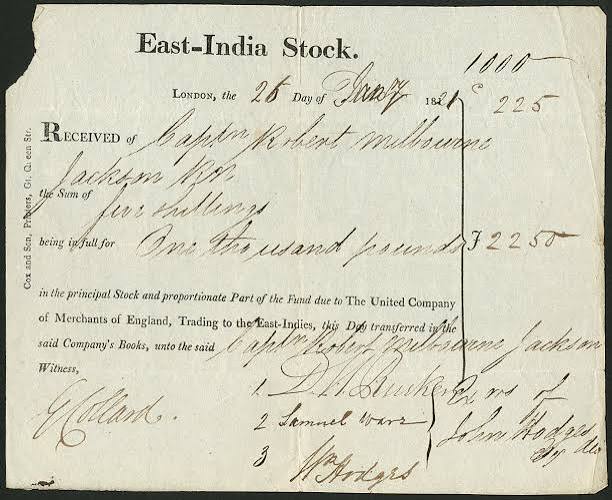 East-India Stock.
1000
LONDON, the 26 Day of Jany 1821
225
RECEIVED of Captn Robert Melbourne
Jackson RN
the Sum of five shillings
being in full for One thousand pounds
£2250
in the principal Stock and proportionate Part of the Fund due to The United Company
of Merchants of England, Trading to the East-Indies, this Day transferred in the
said Company's Books, unto the said Captn Robert Melbourne Jackson
Witness,
1 D H
Exors of
G Collard.
2 Samuel Ware
John Hodges
Esqr decd
3 Wm Hodges
Cox and Son, Printers, Gt. Queen Str.